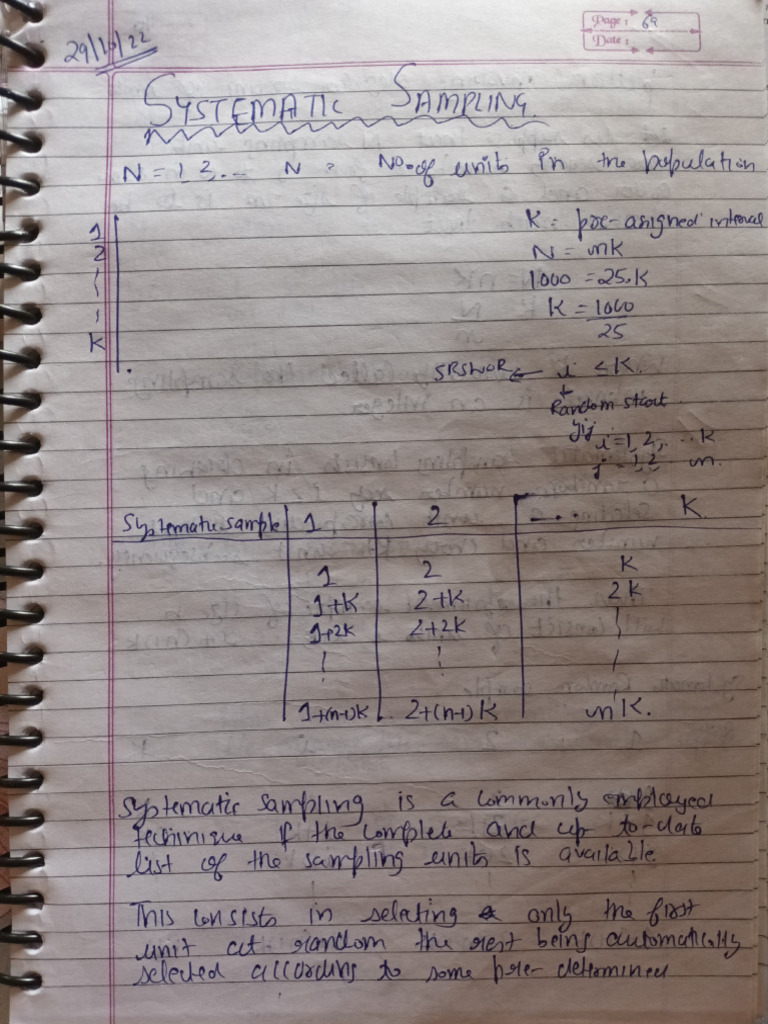 29/10/22
Page: 69
Date:
SYSTEMATIC SAMPLING
N = 1, 2, .. N = No. of units in the population
K = pre-asigned interval
N = nK
1000 = 25.K
K = 1000
25
1
2
K
SRSWOR ← i ≤ K.
Random start
yij i = 1, 2, .. k
j = 1, 2 .. n.
Systematic sample 1 2 .... K.
1 2 K
1+K 2+K 2K
1+2K 2+2K
1+(n-1)K 2+(n-1)K nK.
Systematic sampling is a commonly employed
techinique if the complete and up to-date
list of the sampling units is available.
This consists in selecting only the first
unit at random the rest being automatically
selected according to some pre-determined